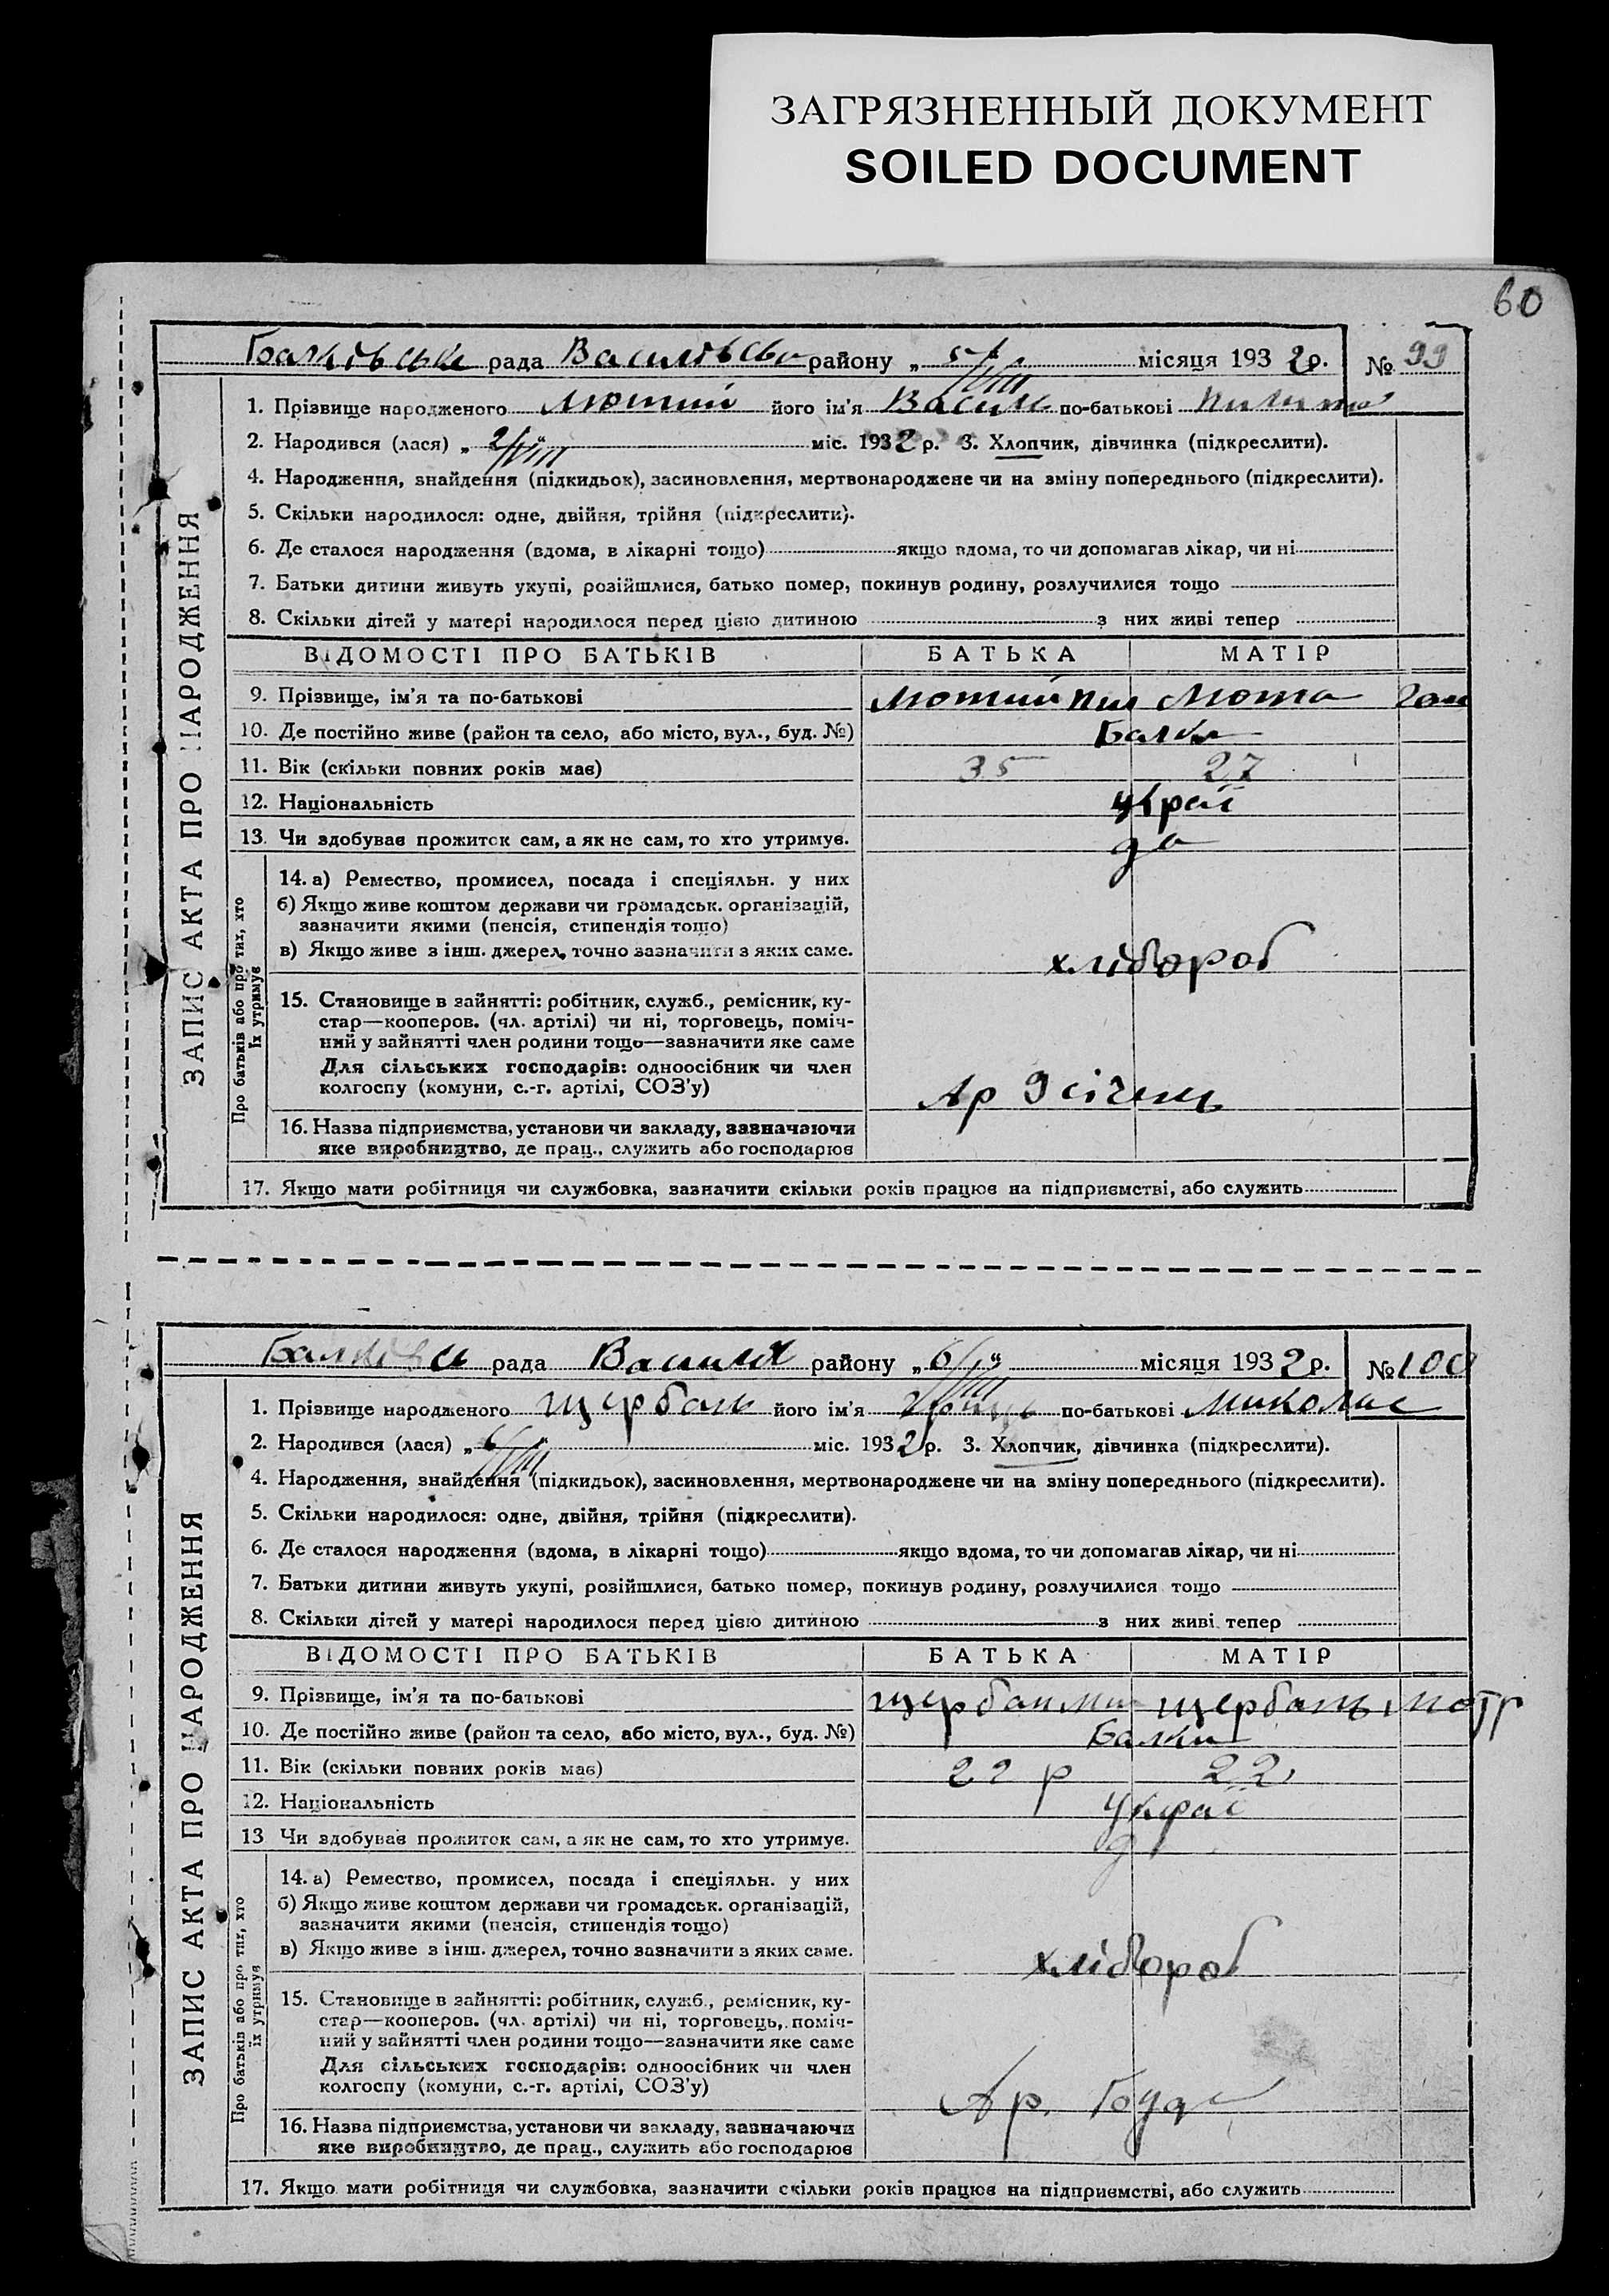 ЗАГРЯЗНЕННЫЙ ДОКУМЕНТ
SOILED DOCUMENT
60
рада району „ 5/VIII місяця 1932 р. № 99
1. Прізвище народженого Лютий його ім'я Василь по-батькові
2. Народився (лася) „ 2/VIII " міс. 1932 р. 3. Хлопчик, дівчинка (підкреслити).
4. Народження, знайдення (підкидьок), засиновлення, мертвонароджене чи на зміну попереднього (підкреслити).
5. Скільки народилося: одне, двійня, трійня (підкреслити).
6. Де сталося народження (вдома, в лікарні тощо) якщо вдома, то чи допомагав лікар, чи ні
7. Батьки дитини живуть укупі, розійшлися, батько помер, покинув родину, розлучилися тощо
8. Скільки дітей у матері народилося перед цією дитиною з них живі тепер
ВІДОМОСТІ ПРО БАТЬКІВ БАТЬКА МАТІР
9. Прізвище, ім'я та по-батькові Лютий Пил Люта Ган
10. Де постійно живе (район та село, або місто, вул., буд. №) Балки
11. Вік (скільки повних років має) 35 27
12. Національність украї
13. Чи здобуває прожиток сам, а як не сам, то хто утримує. да
14. а) Ремество, промисел, посада і спеціяльн. у них
б) Якщо живе коштом держави чи громадськ. організацій,
зазначити якими (пенсія, стипендія тощо)
в) Якщо живе з інш. джерел, точно зазначити з яких саме. хлібороб
15. Становище в зайнятті: робітник, служб., ремісник, ку-
стар—кооперов. (чл. артілі) чи ні, торговець, поміч-
ний у зайнятті член родини тощо—зазначити яке саме
Для сільських господарів: одноосібник чи член
колгоспу (комуни, с.-г. артілі, СОЗ'у) Ар 9 січень
16. Назва підприємства, установи чи закладу, зазначаючи
яке виробництво, де прац., служить або господарює
17. Якщо мати робітниця чи службовка, зазначити скільки років працює на підприємстві, або служить
ЗАПИС АКТА ПРО НАРОДЖЕННЯ
Про батьків або про тих, хто
їх утримує
рада району „ 6/VIII " місяця 1932 р. № 100
1. Прізвище народженого Щербань його ім'я Гриць по-батькові Миколає
2. Народився (лася) „ 6/VIII " міс. 1932 р. 3. Хлопчик, дівчинка (підкреслити).
4. Народження, знайдення (підкидьок), засиновлення, мертвонароджене чи на зміну попереднього (підкреслити).
5. Скільки народилося: одне, двійня, трійня (підкреслити).
6. Де сталося народження (вдома, в лікарні тощо) якщо вдома, то чи допомагав лікар, чи ні
7. Батьки дитини живуть укупі, розійшлися, батько помер, покинув родину, розлучилися тощо
8. Скільки дітей у матері народилося перед цією дитиною з них живі тепер
ВІДОМОСТІ ПРО БАТЬКІВ БАТЬКА МАТІР
9. Прізвище, ім'я та по-батькові Щербан Ми Щербань Мотр
10. Де постійно живе (район та село, або місто, вул., буд. №) Балки
11. Вік (скільки повних років має) 22 р 22
12. Національність украї
13 Чи здобуває прожиток сам, а як не сам, то хто утримує.
14. а) Ремество, промисел, посада і спеціяльн. у них
б) Якщо живе коштом держави чи громадськ. організацій,
зазначити якими (пенсія, стипендія тощо)
в) Якщо живе з інш. джерел, точно зазначити з яких саме. хлібороб
15. Становище в зайнятті: робітник, служб., ремісник, ку-
стар—кооперов. (чл. артілі) чи ні, торговець, поміч-
ний у зайнятті член родини тощо—зазначити яке саме
Для сільських господарів: одноосібник чи член
колгоспу (комуни, с.-г. артілі, СОЗ'у) Ар.
16. Назва підприємства, установи чи закладу, зазначаючи
яке виробництво, де прац., служить або господарює
17. Якщо мати робітниця чи службовка, зазначити скільки років працює на підприємстві, або служить
ЗАПИС АКТА ПРО НАРОДЖЕННЯ
Про батьків або про тих, хто
їх утримує